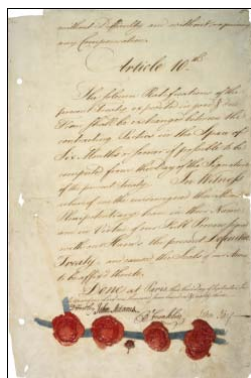 without Difficulty and without requiring
any Compensation.
Article 10th
The solemn Ratifications of the
present Treaty expedited in good & due
Form shall be exchanged between the
contracting Parties in the Space of
Six Months or sooner if possible to be
computed from the Day of the Signature
of the present Treaty. In Witness
whereof we the undersigned their Ministers
Plenipotentiary have in their Name
and in Virtue of our Full Powers signed
with our Hands the present Definitive
Treaty, and caused the Seals of our Arms
to be affix'd thereto.
Done at Paris, this third Day of September
D Hartley John Adams
B Franklin John Jay